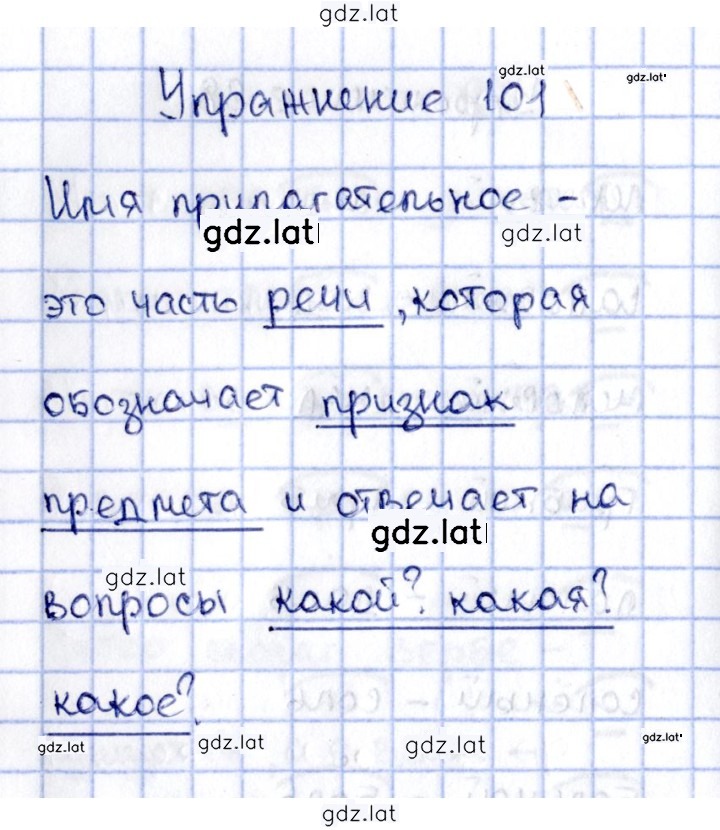 gdz.lat
Упражнение 101
gdz.lat
gdz.lat
Имя прилагательное -
gdz.lat
gdz.lat
это часть речи, которая
обозначает признак
предмета и отвечает на
gdz.lat
gdz.lat
вопросы какой? какая?
какое?.
gdz.lat
gdz.lat
gdz.lat
gdz.lat
gdz.lat